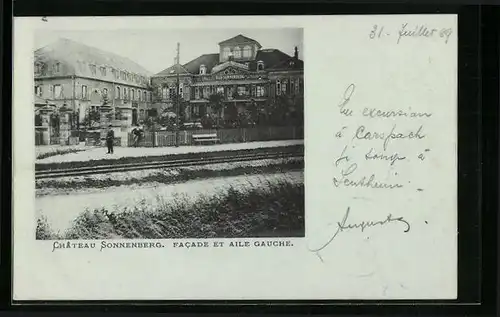 31 Juillet 89
En excursion
à Carspach
à
Sentheim
Auguste
CHÂTEAU SONNENBERG. FAÇADE ET AILE GAUCHE.